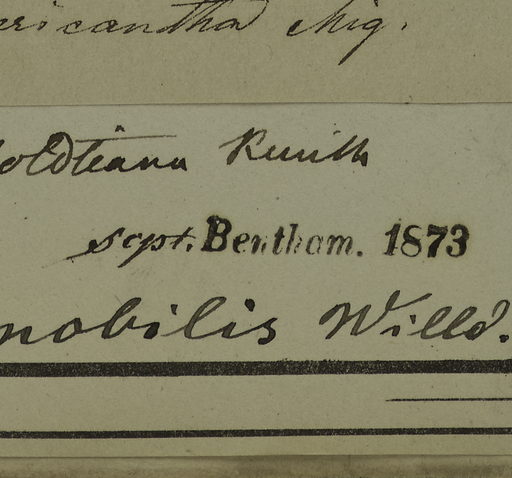 ericantha Miq.
oldtiana Kunth
scpt. Bentham. 1873
nobilis Willd.